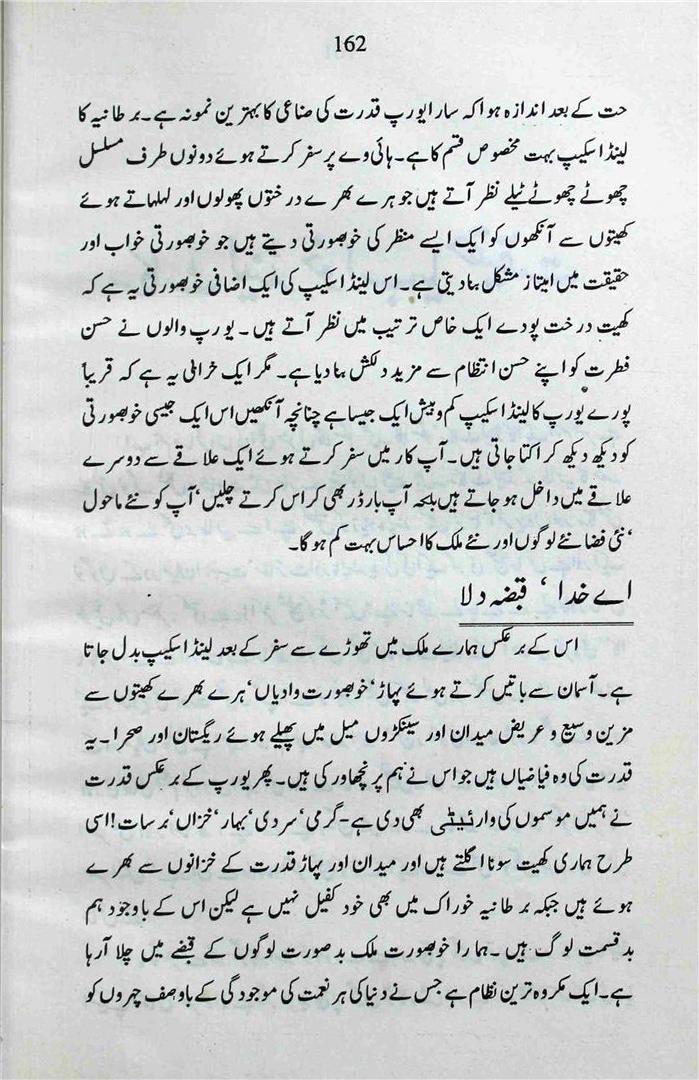 162
حت کے بعد اندازہ ہوا کہ سارا یورپ قدرت کی صناعی کا بہترین نمونہ ہے۔ برطانیہ کا
لینڈ اسکیپ بہت مخصوص قسم کا ہے۔ ہائی وے پر سفر کرتے ہوئے دونوں طرف مسلسل
چھوٹے چھوٹے ٹیلے نظر آتے ہیں جو ہرے بھرے درختوں پھولوں اور لہلہاتے ہوئے
کھیتوں سے آنکھوں کو ایک ایسے منظر کی خوبصورتی دیتے ہیں جو خوبصورتی خواب اور
حقیقت میں امیتاز مشکل بنا دیتی ہے۔ اس لینڈ اسکیپ کی ایک اضافی خوبصورتی یہ ہے کہ
کھیت درخت پودے ایک خاص ترتیب میں نظر آتے ہیں۔ یورپ والوں نے حسن
فطرت کو اپنے حسن انتظام سے مزید دلکش بنا دیا ہے۔ مگر ایک خرابی یہ ہے کہ قریباً
پورے یورپ کا لینڈ اسکیپ کم و بیش ایک جیسا ہے چنانچہ آنکھیں اس ایک جیسی خوبصورتی
کو دیکھ دیکھ کر اکتا جاتی ہیں۔ آپ کار میں سفر کرتے ہوئے ایک علاقے سے دوسرے
علاقے میں داخل ہو جاتے ہیں بلکہ آپ بارڈر بھی کراس کرتے چلیں، آپ کو نئے ماحول
، نئی فضا نئے لوگوں اور نئے ملک کا احساس بہت کم ہو گا۔
اے خدا ، قبضہ دلا
اس کے برعکس ہمارے ملک میں تھوڑے سے سفر کے بعد لینڈ اسکیپ بدل جاتا
ہے۔ آسمان سے باتیں کرتے ہوئے پہاڑ، خوبصورت وادیاں، ہرے بھرے کھیتوں سے
مزین وسیع و عریض میدان اور سینکڑوں میل میں پھیلے ہوئے ریگستان اور صحرا۔ یہ
قدرت کی وہ فیاضیاں ہیں جو اس نے ہم پر نچھاور کی ہیں۔ پھر یورپ کے برعکس قدرت
نے ہمیں موسموں کی وارئیٹی بھی دی ہے-گرمی، سردی، بہار، خزاں، برسات! اسی
طرح ہماری کھیت سونا اگلتے ہیں اور میدان اور پہاڑ قدرت کے خزانوں سے بھرے
ہوئے ہیں جبکہ برطانیہ خوراک میں بھی خود کفیل نہیں ہے لیکن اس کے باوجود ہم
بدقسمت لوگ ہیں۔ ہمارا خوبصورت ملک بدصورت لوگوں کے قبضے میں چلا آرہا
ہے۔ ایک مکروہ ترین نظام ہے جس نے دنیا کی ہر نعمت کی موجودگی کے باوصف چہروں کو